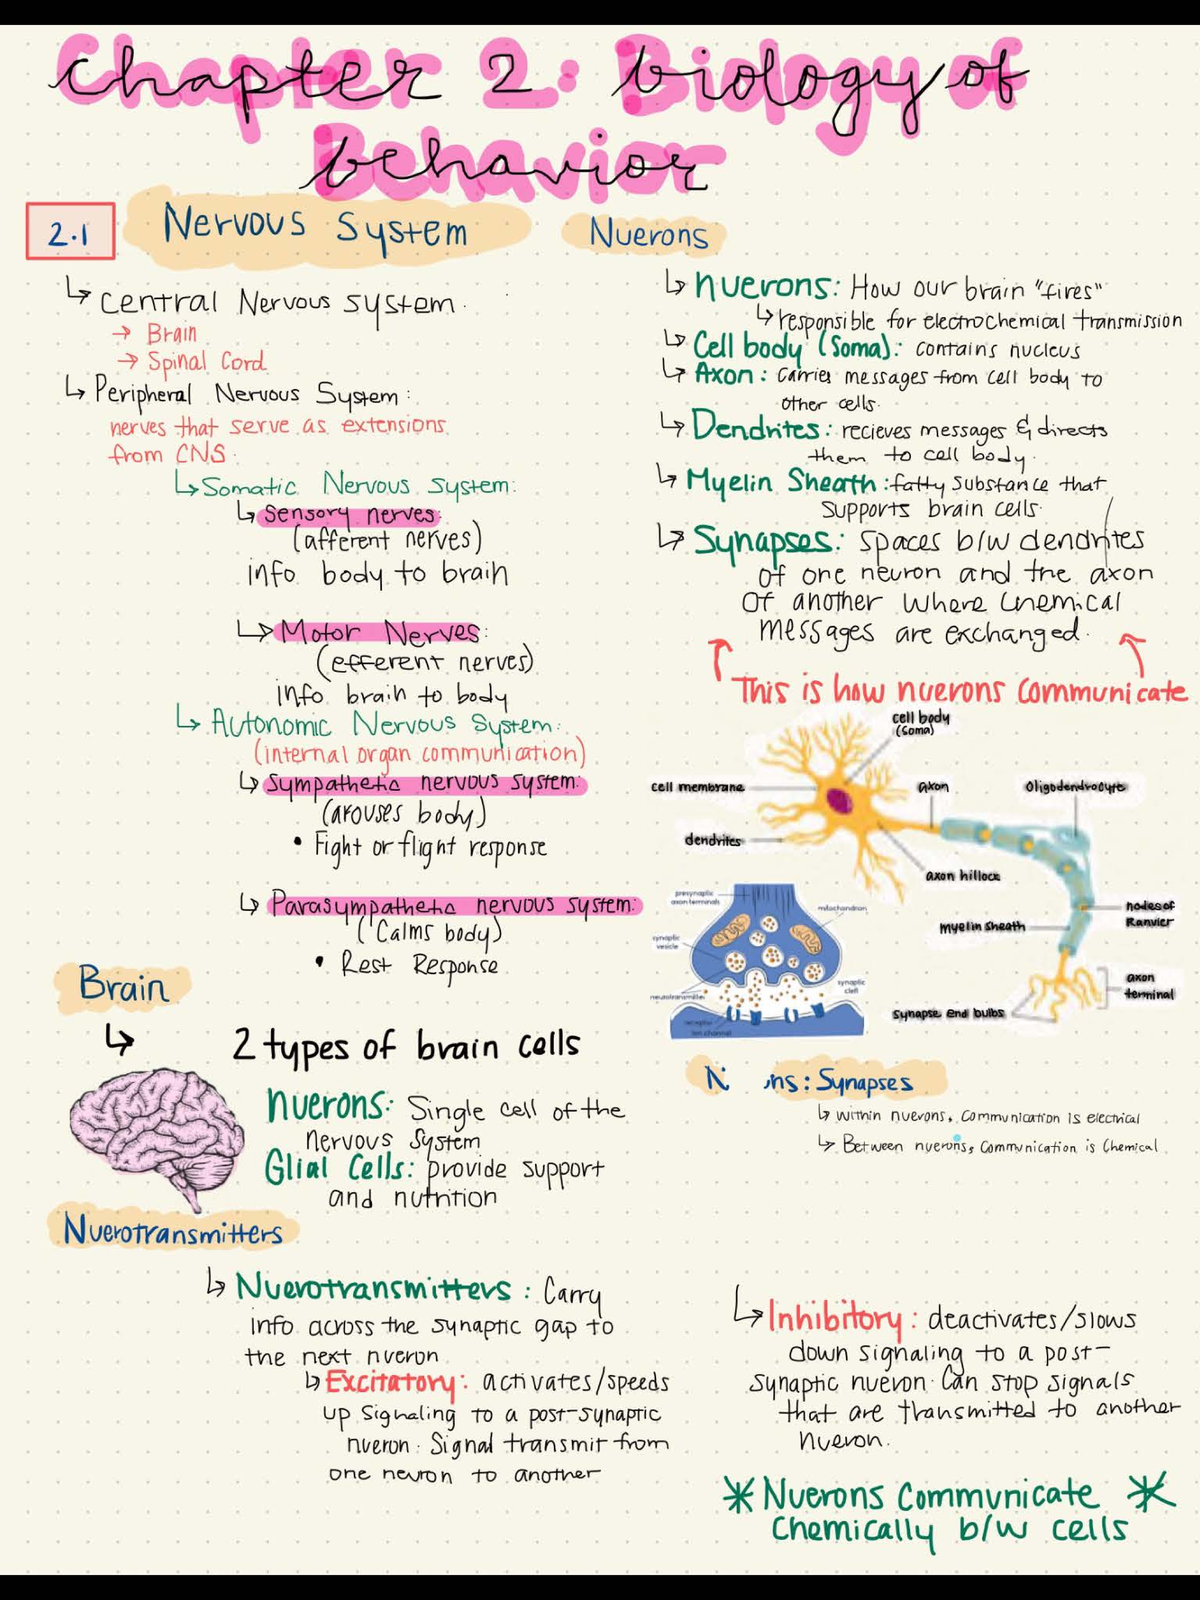 Chapter 2: Biology of
Behavior
2.1
Nervous System
↳ Central Nervous System
→ Brain
→ Spinal Cord
↳ Peripheral Nervous System:
nerves that serve as extensions
from CNS.
↳ Somatic Nervous System:
↳ Sensory nerves:
(afferent nerves)
info body to brain
↳ Motor Nerves:
(efferent nerves)
info brain to body
↳ Autonomic Nervous System:
(internal organ communication)
↳ Sympathetic nervous system:
(arouses body)
• Fight or flight response
↳ Parasympathetic nervous system:
(Calms body)
• Rest Response
Nuerons
↳ Nuerons: How our brain "fires"
↳ responsible for electrochemical transmission
↳ Cell body (Soma): contains nucleus
↳ Axon: carries messages from cell body to
other cells.
↳ Dendrites: recieves messages & directs
them to cell body.
↳ Myelin Sheath: fatty substance that
supports brain cells.
↳ Synapses: spaces b/w dendrites
of one neuron and the axon
of another where chemical
messages are exchanged.
This is how nuerons communicate
cell body
(soma)
cell membrane
axon
Oligodendrocyte
dendrites
axon hillock
nodes of
Ranvier
myelin sheath
axon
terminal
synapse end bulbs
presynaptic
axon terminals
mitochondrion
synaptic
vesicle
synaptic
cleft
neurotransmitter
receptor
ion channel
Brain
↳ 2 types of brain cells
Nuerons: Single cell of the
nervous system
Glial Cells: provide support
and nutrition
N ns: Synapses
↳ within nuerons, communication is electrical
↳ Between nuerons, communication is chemical
Nuerotransmitters
↳ Nuerotransmitters: Carry
info across the synaptic gap to
the next nueron
↳ Excitatory: activates/speeds
up signaling to a post-synaptic
nueron. Signal transmit from
one neuron to another
↳ Inhibitory: deactivates/slows
down signaling to a post-
synaptic nueron. Can stop signals
that are transmitted to another
nueron.
* Nuerons communicate *
Chemically b/w cells